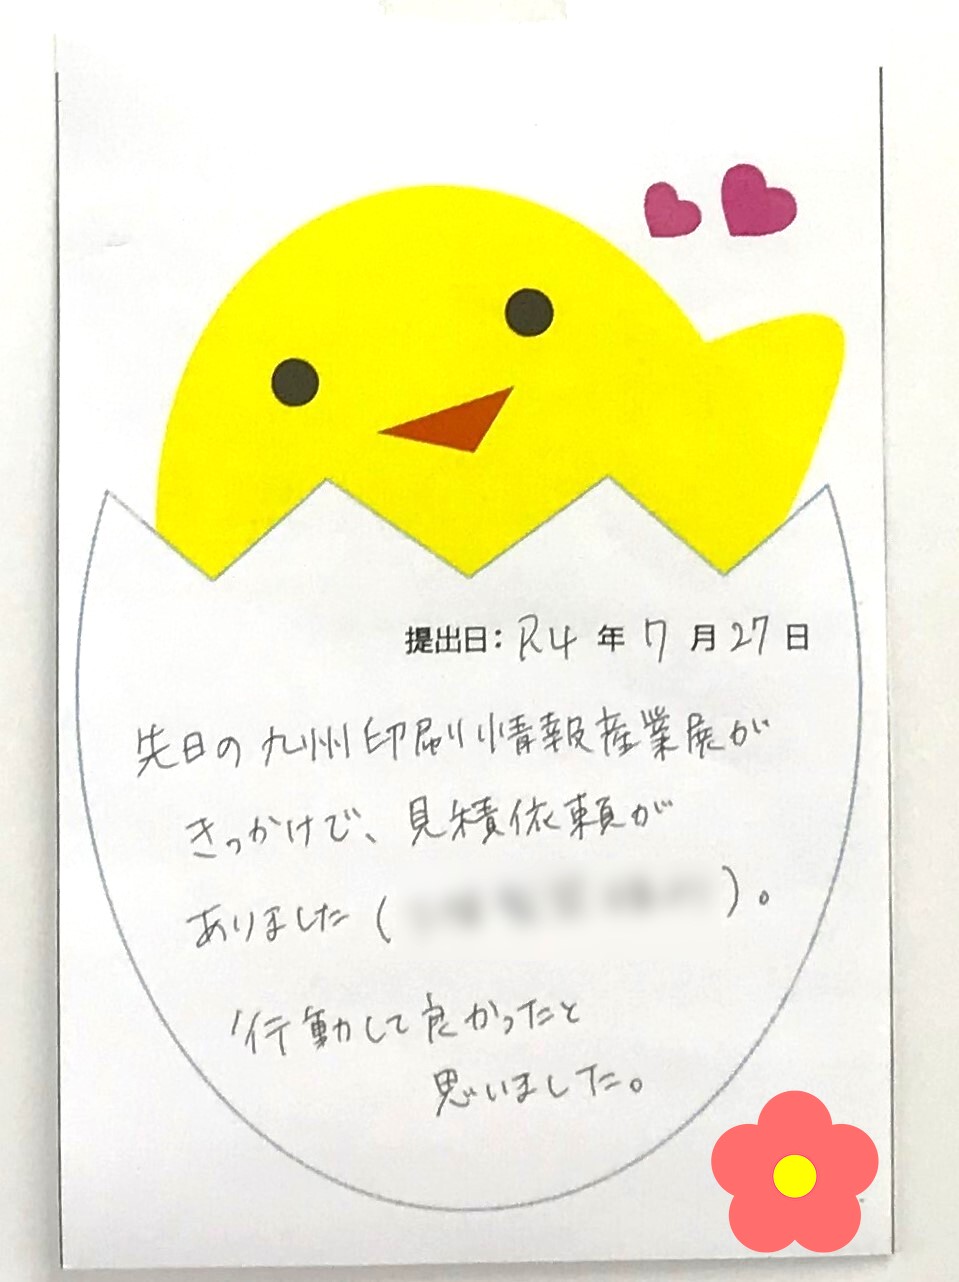 提出日：R4年7月27日
先日の九州印刷情報産業展が
きっかけで、見積依頼が
ありました（ ）。
行動して良かったと
思いました。